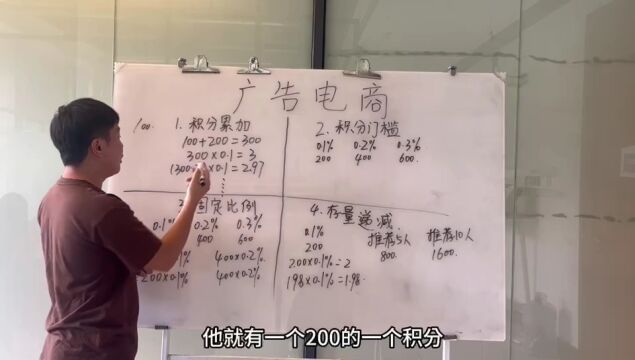 广告电商
100.
1. 积分累加
100+200=300
300×0.1=3
×0.1=2.97
2. 积分门槛
0.1% 0.2% 0.3%
200 400 600.
固定比例
0.1% 0.2% 0.3%
400 600
×0.1% 400×0.2%
200×0.1% 400×0.2%
4. 存量递减.
0.1% 推荐5人 推荐10人
200 800. 1600.
200×0.1%=2
198×0.1%=1.98.
他就有一个200的一个积分